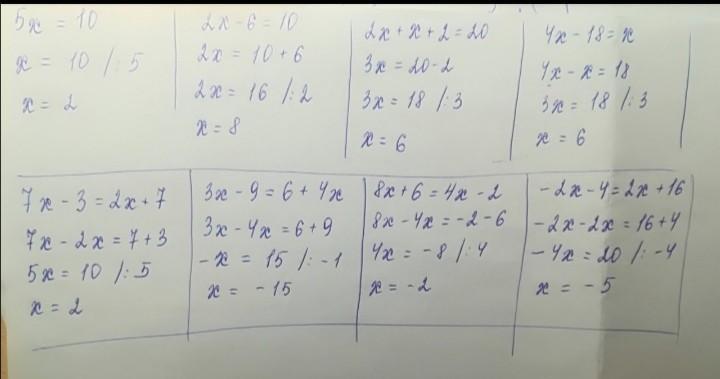 5x = 10
x = 10 /:5
x = 2
2x - 6 = 10
2x = 10 + 6
2x = 16 /:2
x = 8
2x + x + 2 = 20
3x = 20-2
3x = 18 /:3
x = 6
4x - 18 = x
4x - x = 18
3x = 18 /:3
x = 6
7x - 3 = 2x + 7
7x - 2x = 7 + 3
5x = 10 /:5
x = 2
3x - 9 = 6 + 4x
3x - 4x = 6 + 9
-x = 15 /:-1
x = -15
8x + 6 = 4x - 2
8x - 4x = -2 - 6
4x = -8 /:4
x = -2
-2x - 4 = 2x + 16
-2x - 2x = 16 + 4
-4x = 20 /:-4
x = -5